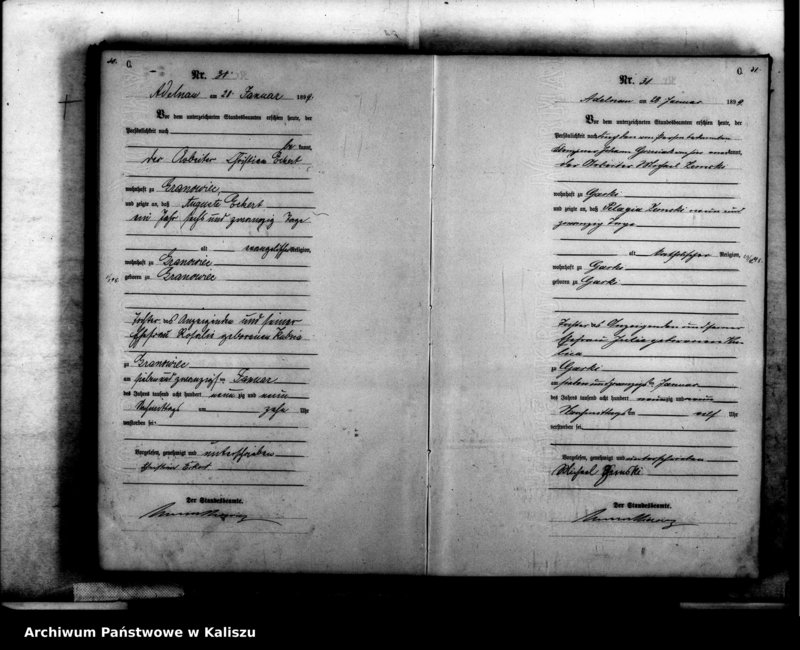 C.
Nr. 30.
Adelnau am 28 Januar 1899.
Vor dem unterzeichneten Standesbeamten erschien heute, der
Persönlichkeit nach
be kannt,
der Arbeiter Christian Eckert
wohnhaft zu Granowiec
und zeigte an, daß Auguste Eckert
ein Jahr sechs und zwanzig Tage
alt evangelischer Religion,
wohnhaft zu Granowiec
geboren zu Granowiec
Tochter des Anzeigenden und seiner
Ehefrau Rosalie geborenen
zu Granowiec
am sieben und zwanzigsten Januar
des Jahres tausend acht hundert neun zig und neun
Nachmittags um zehn Uhr
verstorben sei.
Vorgelesen, genehmigt und unterschrieben
Christian Eckert
Der Standesbeamte.
C. 31.
Nr. 31
Adelnau am 28 Januar 1899
Vor dem unterzeichneten Standesbeamten erschien heute, der
Persönlichkeit nach
kannt,
der Arbeiter Michael Zemski
wohnhaft zu Garki
und zeigte an, daß Pelagia Zemski neun und
zwanzig Tage
alt katholischer Religion,
wohnhaft zu Garki
geboren zu Garki
Tochter des Anzeigenden und seiner
Ehefrau Julia geborenen
zu Garki
am sieben und zwanzigsten Januar
des Jahres tausend acht hundert neunzig und neun
Nachmittags um elf Uhr
verstorben sei.
Vorgelesen, genehmigt und unterschrieben
Michael Zemski
Der Standesbeamte.
Archiwum Państwowe w Kaliszu